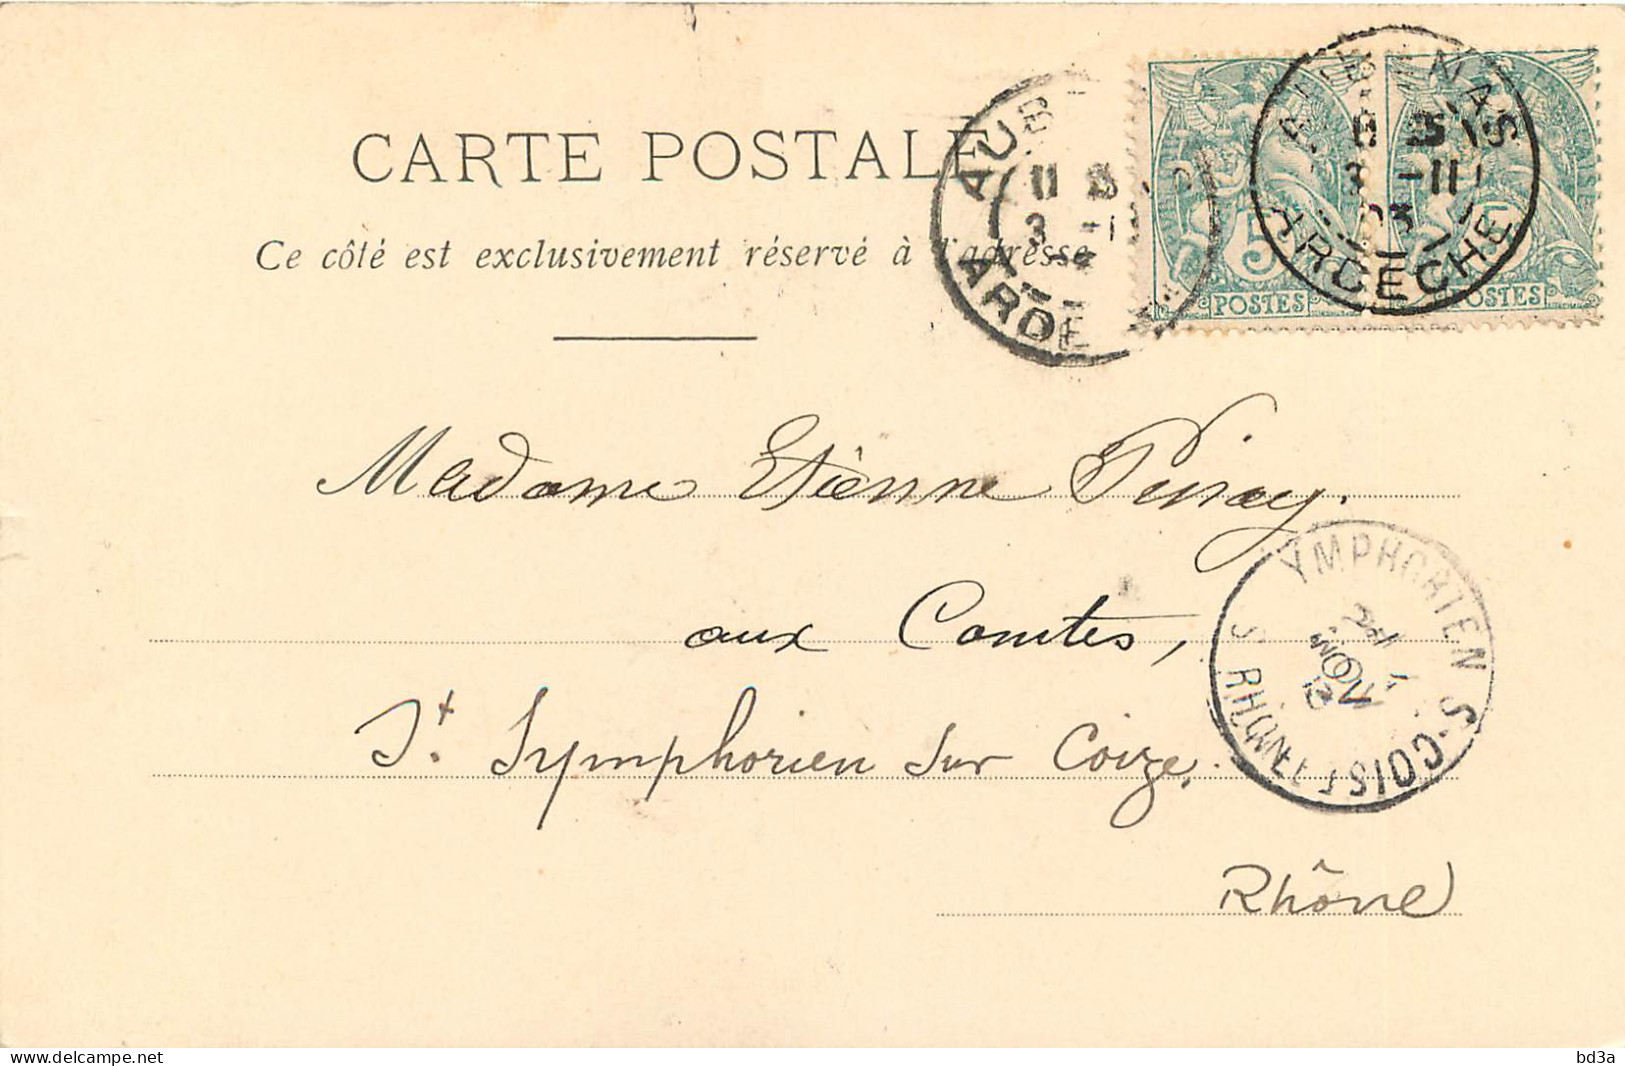 CARTE POSTALE
Ce côté est exclusivement réservé à l'adresse
AUB
11 3
3 -1
ARDE
AUBENAS
3 -11
03
ARDECHE
5
POSTES
5
POSTES
Madame Etienne Pinay.
aux Comtes,
St. Symphorien sur Coize.
Rhône
SYMPHORIEN S-COISE
NOV
RHONE
delcampe.net
bd3a